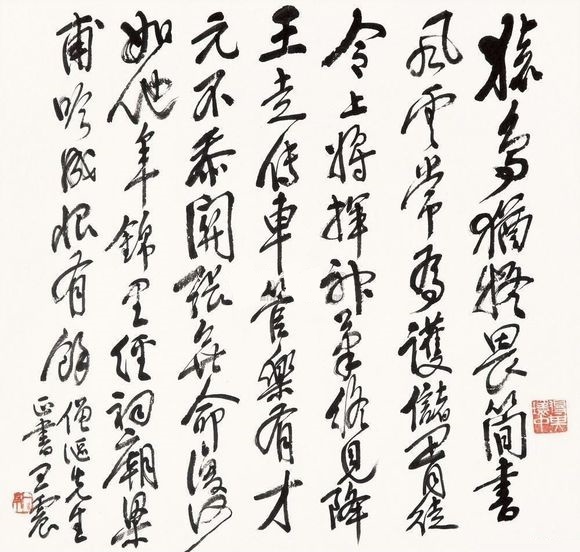 猿鳥猶疑畏簡書
風雲常為護儲胥徒
令上將揮神筆終見降
王走傳車管樂有才
元不忝關張無命復何
如他年錦里經祠廟梁
甫吟成恨有餘 僧漚先生
正書王震